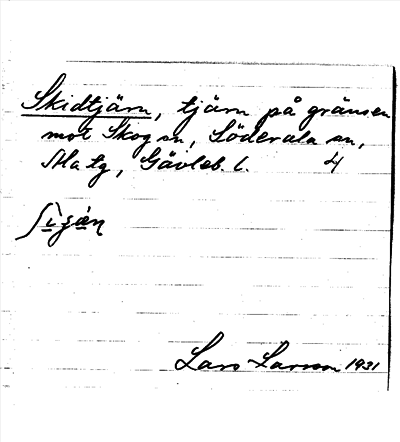 Skidtjärn, tjärn på gränsen
mot Skog sn, Söderala sn,
Ala tg, Gävleb. l. 4
Lars Larsson 1931